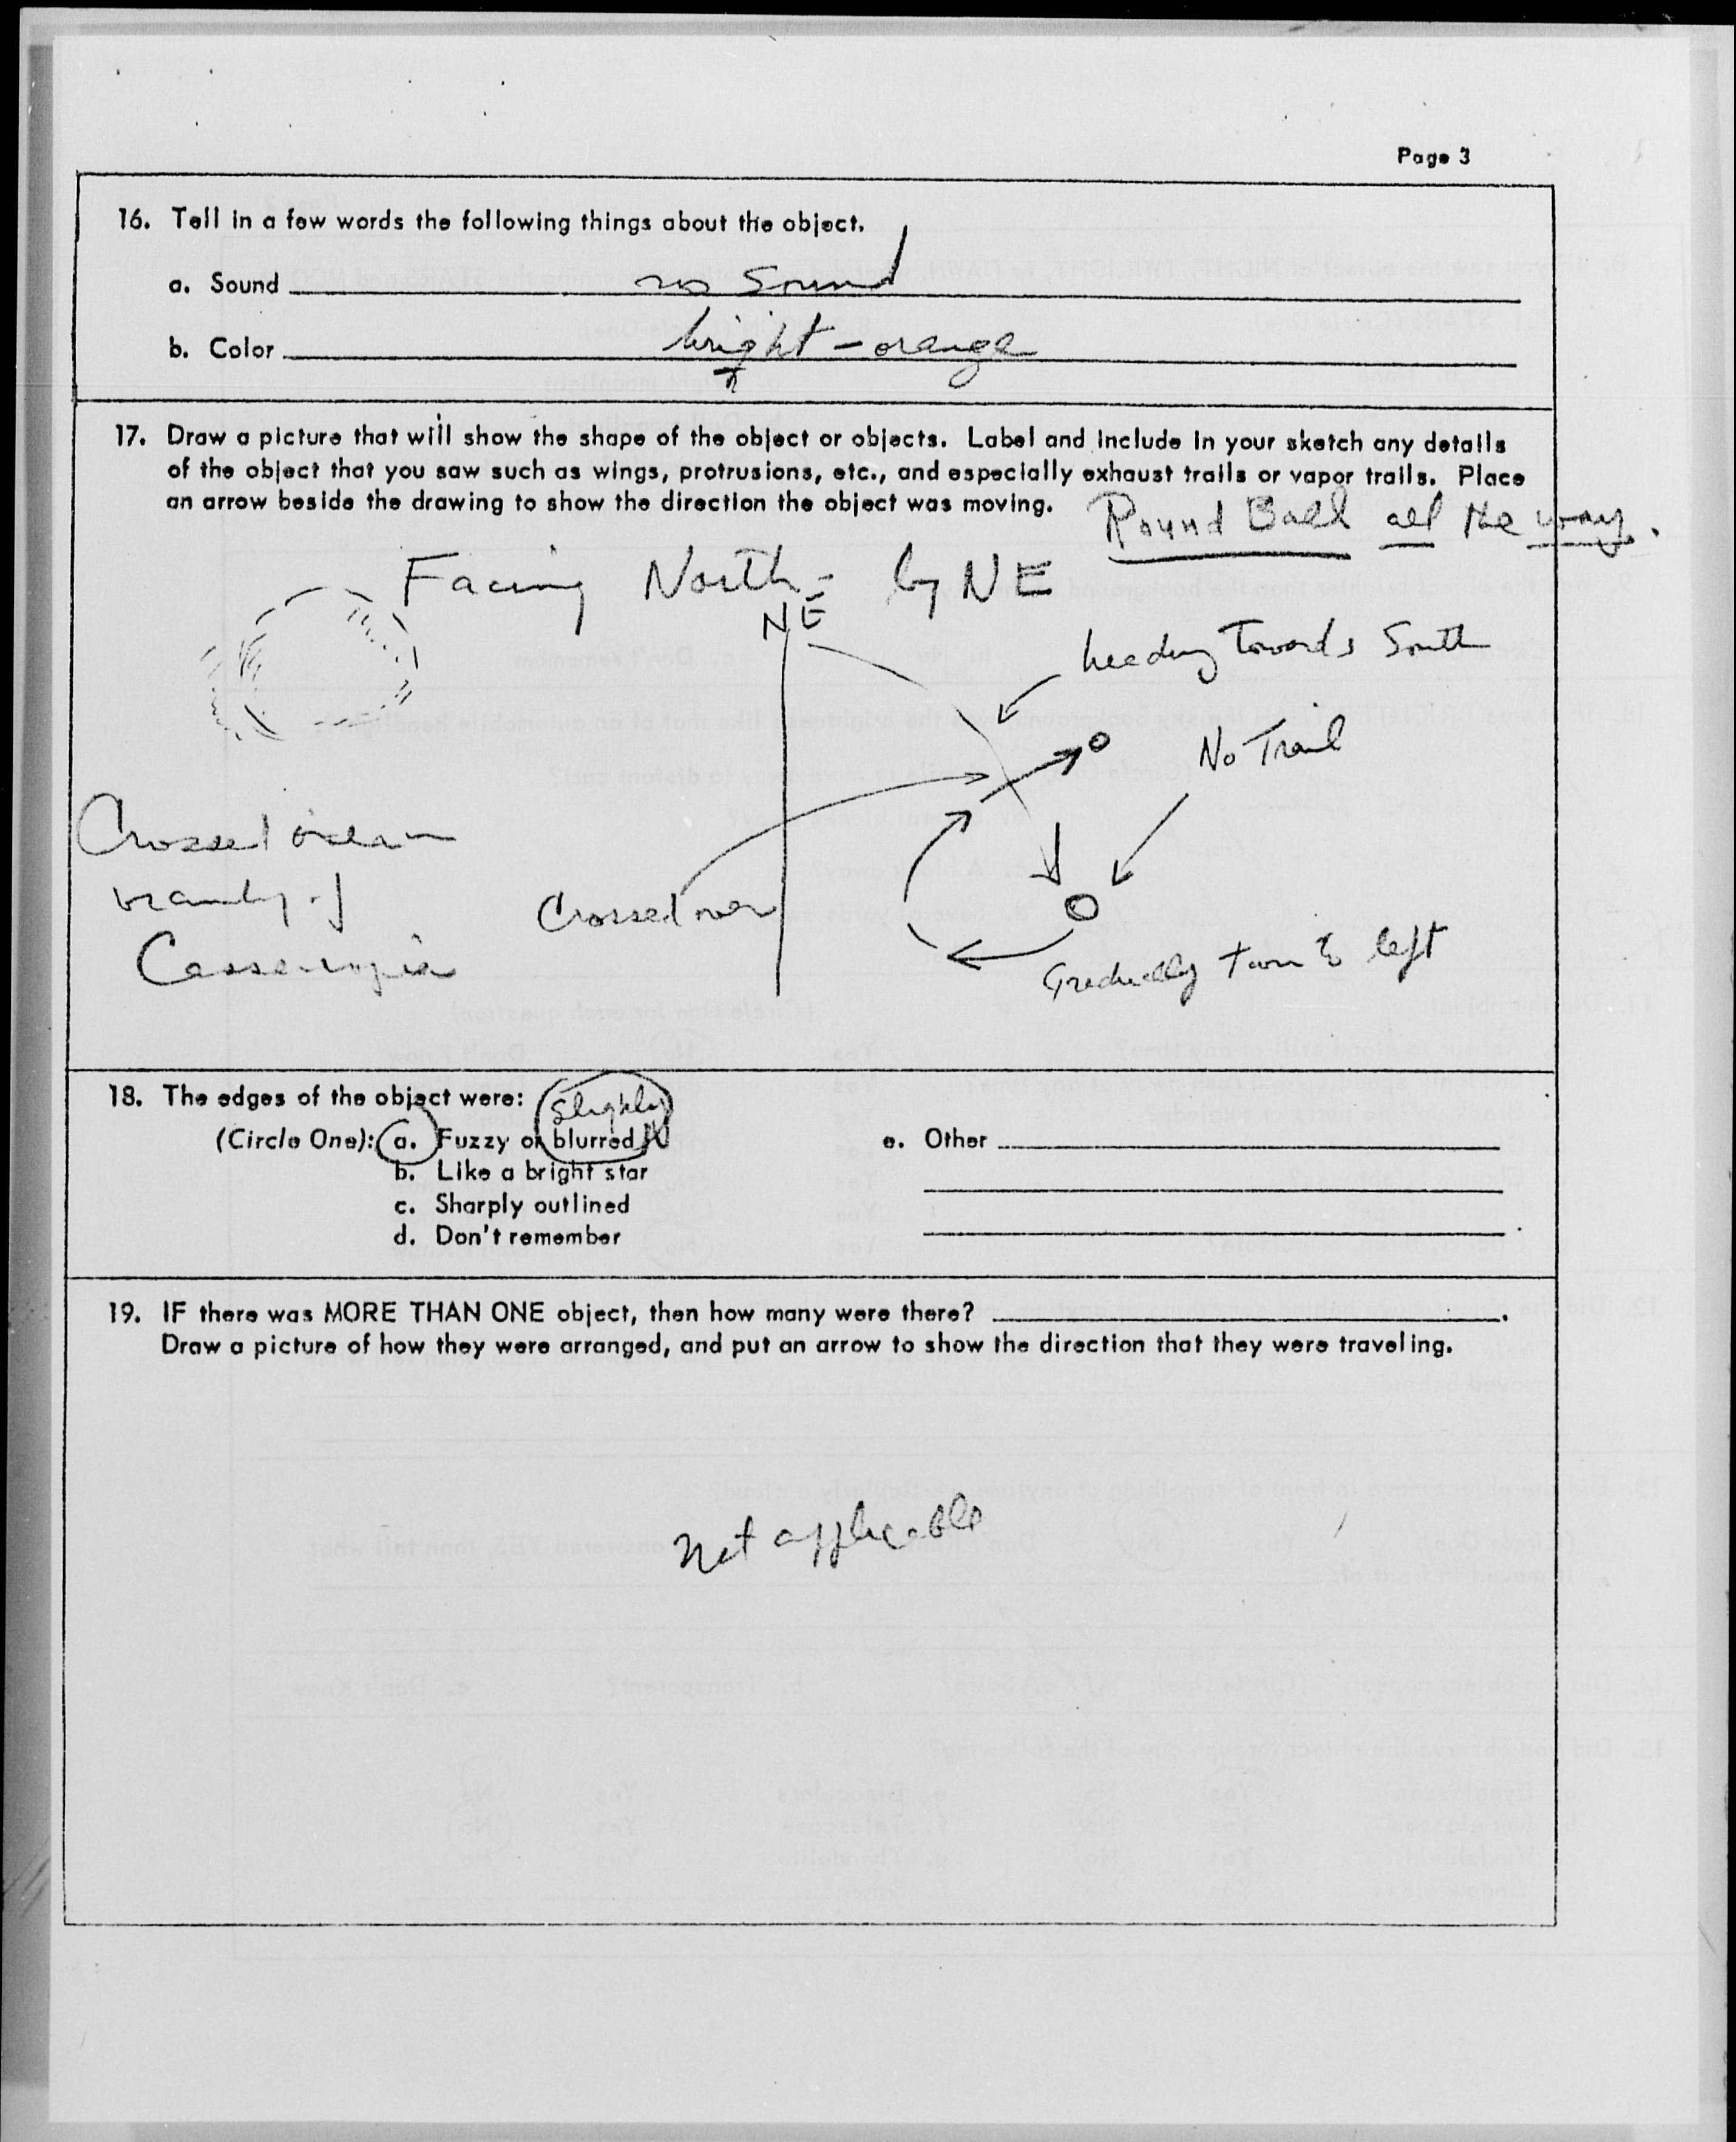 Page 3
16. Tell in a few words the following things about the object.
a. Sound no sound
b. Color bright - orange
17. Draw a picture that will show the shape of the object or objects. Label and include in your sketch any details
of the object that you saw such as wings, protrusions, etc., and especially exhaust trails or vapor trails. Place
an arrow beside the drawing to show the direction the object was moving. Round Ball all the way.
Facing North - by NE
NE
heading towards South
No Trail
Crossed
Crossed over
Gradually turn to left
18. The edges of the object were:
slighly
(Circle One): a. Fuzzy or blurred
b. Like a bright star
c. Sharply outlined
d. Don't remember
e. Other
19. IF there was MORE THAN ONE object, then how many were there?
Draw a picture of how they were arranged, and put an arrow to show the direction that they were traveling.
Not applicable